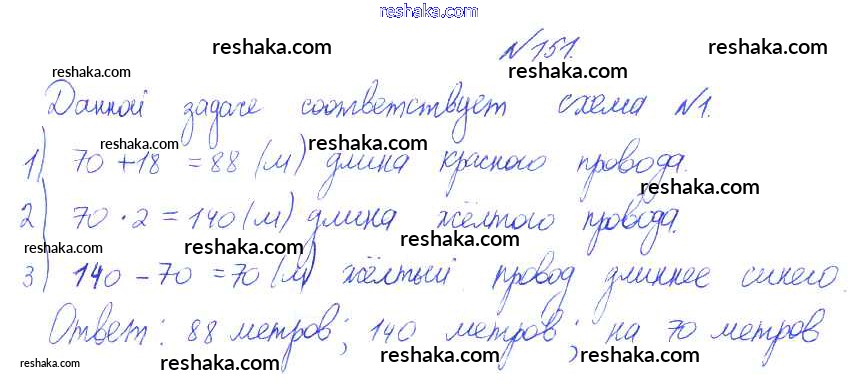 reshaka.com
№151.
reshaka.com reshaka.com
reshaka.com reshaka.com
Данной задаче соответствует схема №1.
reshaka.com reshaka.com
1) 70 + 18 = 88 (м) длина красного провода.
reshaka.com
2) 70 · 2 = 140 (м) длина жёлтого провода.
reshaka.com reshaka.com reshaka.com
3) 140 - 70 = 70 (м) жёлтый провод длиннее синего.
Ответ: 88 метров; 140 метров; на 70 метров
reshaka.com reshaka.com reshaka.com reshaka.com